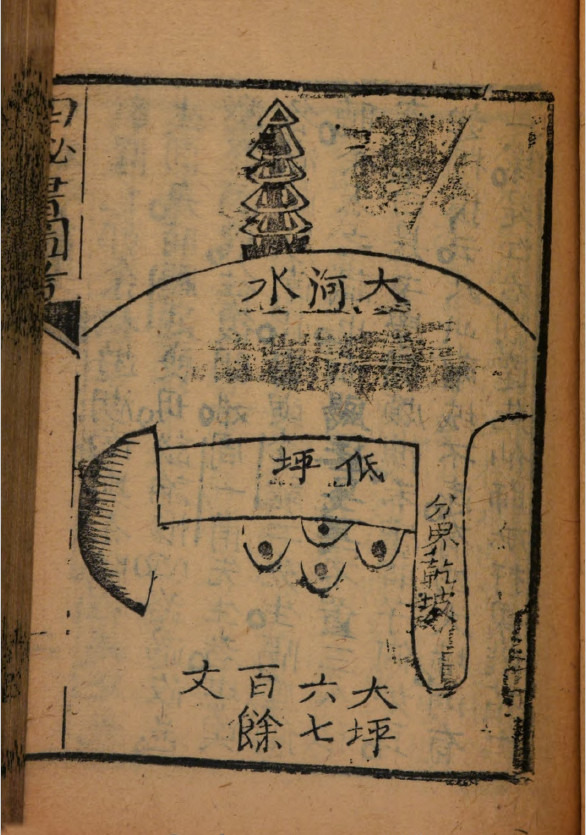 大河水
低坪
分界乾坡
大坪
六七
百餘
文